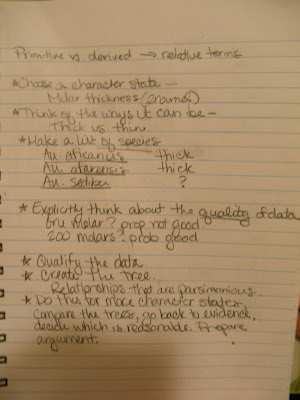 Primitive vs derived → relative terms
* Choose a character state —
Molar thickness (enamel)
* Think of the ways it can be —
Thick vs. thin.
* Make a list of species
Au. africanus thick
Au. afarensis thick
Au. sediba ?
* Explicitly think about the quality of data
one molar? prob not good
200 molars? prob good
* Qualify the data
* Create the tree.
Relationships that are parsimonious.
* Do this for more character states,
compare the trees, go back to evidence,
decide which is reasonable. Prepare
argument.